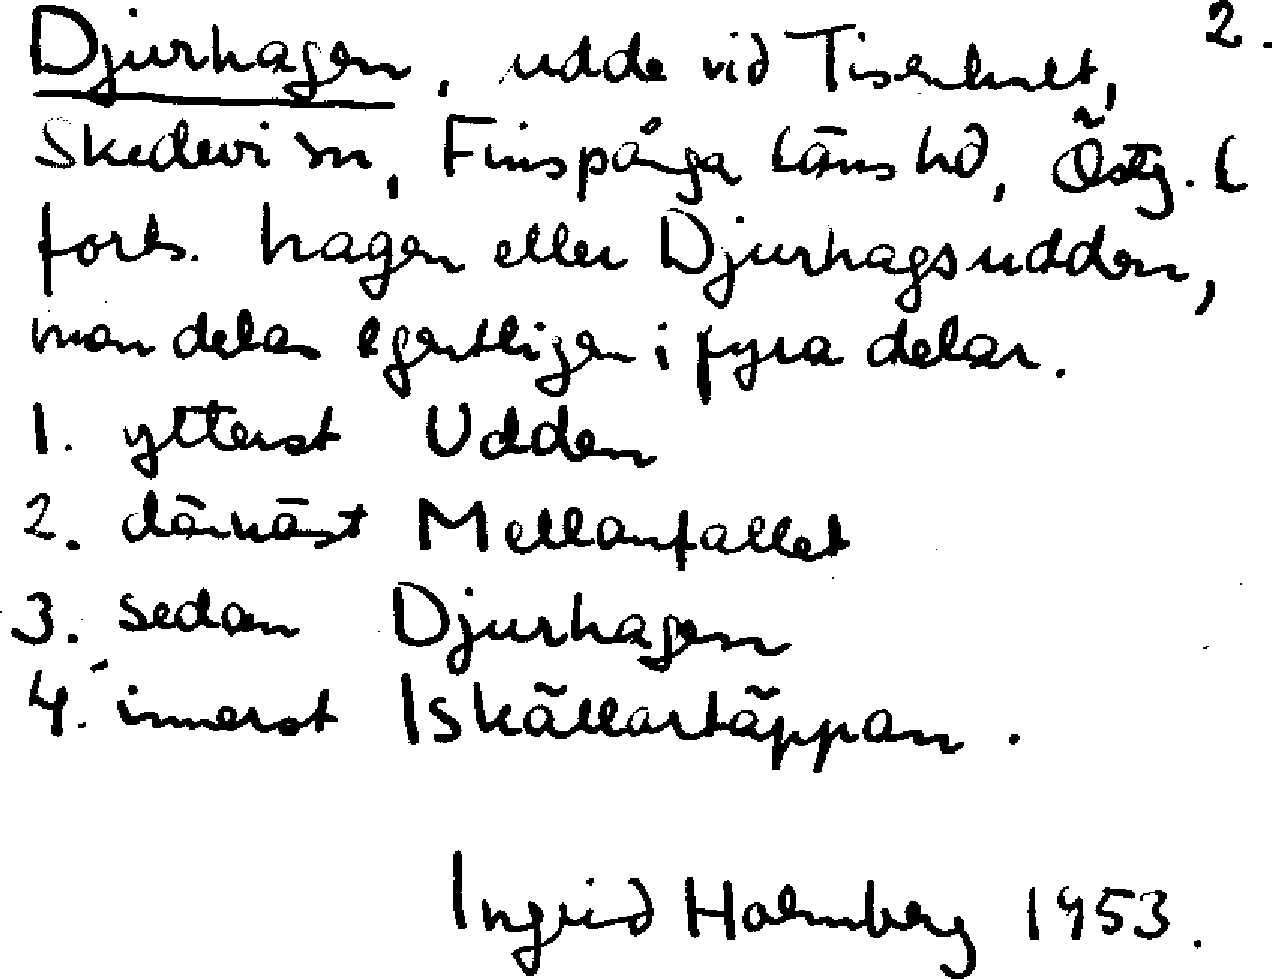 2.
Djurhagen, udde vid Tisenhult,
Skedevi sn, Finspånga läns hd, Östg. l
forts. hagen eller Djurhagsudden,
man delar egentligen i fyra delar.
1. ytterst Udden
2. därnäst Mellanfallet
3. sedan Djurhagen
4. innerst Iskällartäppan.
Ingrid Holmberg 1953.